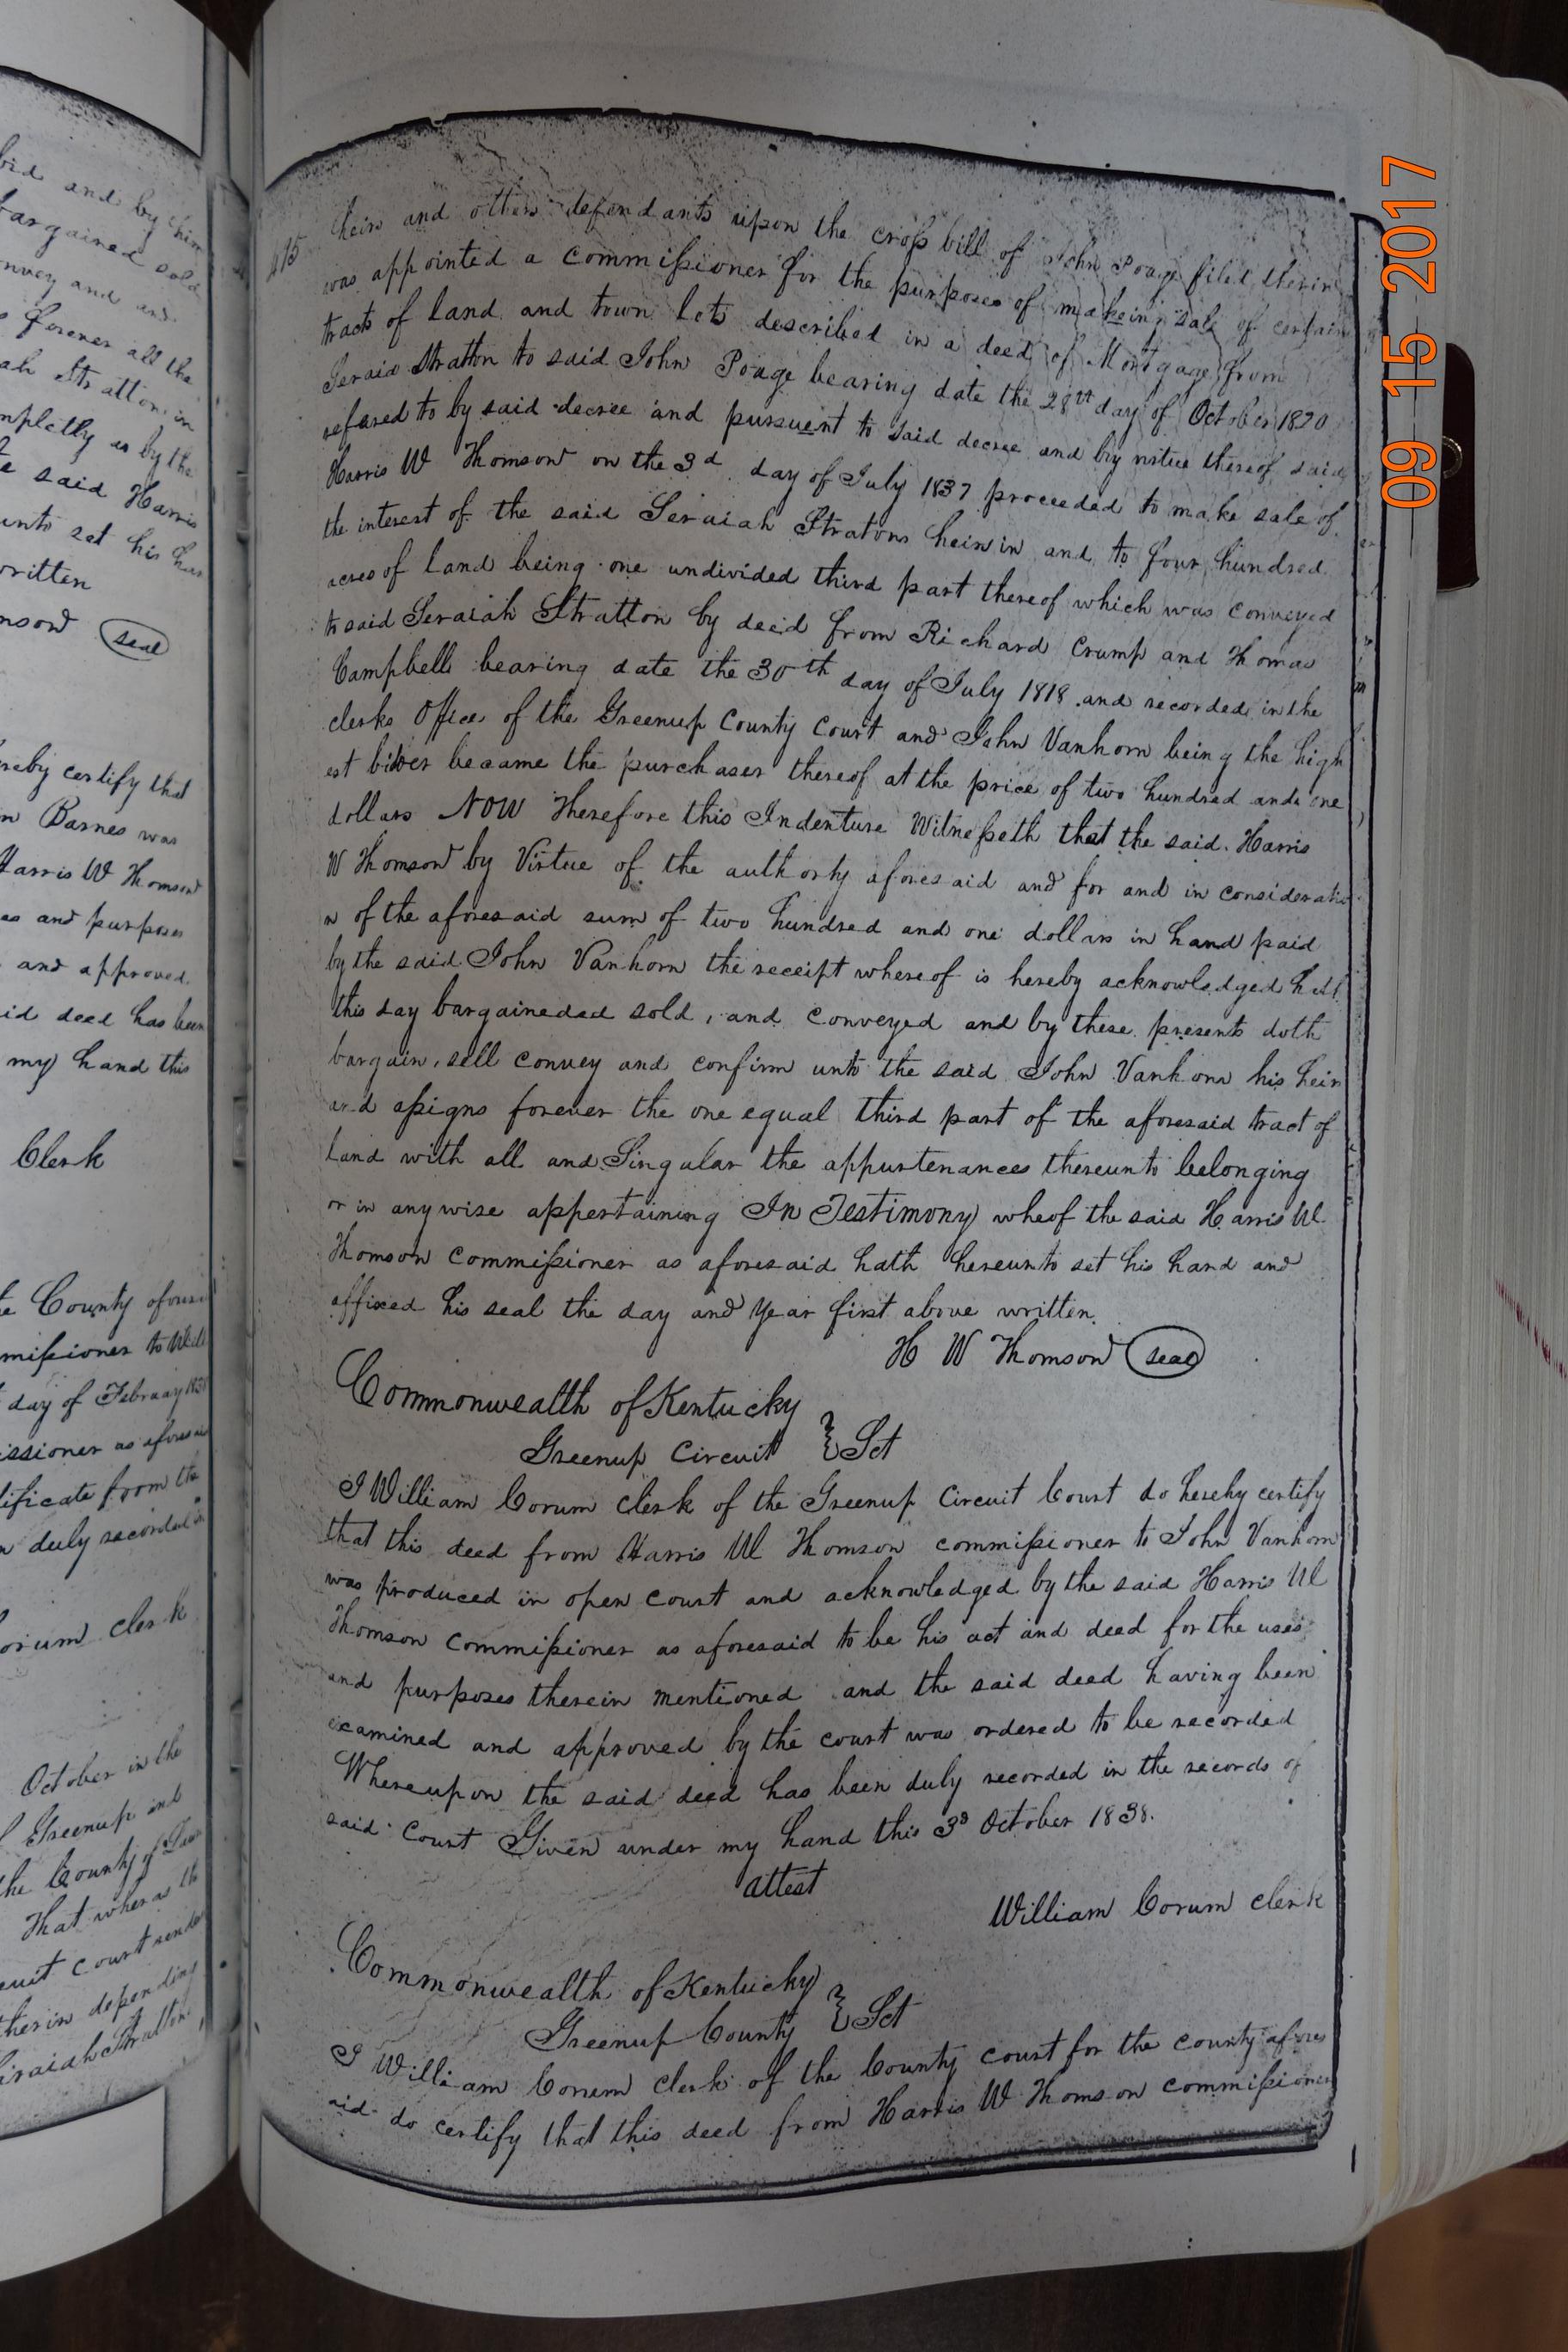 bid and by him
bargained sold
convey and and
forever all the
ah Stratton in
completly as by the
said Harris
unto set his han
written
mson seal
reby certify that
n Barnes was
Harris W Thomson
es and purposes
and approved
id deed has been
my hand this
Clerk
County aforesai
missioner to
day of February
issioner as aforesai
tificate from the
n duly recorded in
orum clerk
October in the
Greenup and
the County of
That wheras th
cuit court rende
therin depending
Siraiah Stratton
415
heirs and others defendants upon the cross bill of John Poage filed therin
was appointed a commissioner for the purposes of makeing sale of certain
tracts of land and town lots described in a deed of Mortgage from
Seraia Stratton to said John Poage bearing date the 28th day of October 1820
refered to by said decree and pursuent to said decree and by virtue thereof said
Harris W Thomson on the 3d day of July 1837 proceeded to make sale of
the interest of the said Seraiah Stratons heirs in and to four hundred
acres of land being one undivided third part thereof which was conveyed
to said Seraiah Stratton by deed from Richard Crump and Thomas
Campbell bearing date the 30th day of July 1818 and recorded in the
clerks Office of the Greenup County Court and John Vanhorn being the high
est bider became the purchaser thereof at the price of two hundred and one
dollars NOW Therefore this Indenture Witnesseth that the said Harris
W Thomson by Virtue of the authority aforesaid and for and in consideratio
n of the aforesaid sum of two hundred and one dollars in hand paid
by the said John Vanhorn the receipt whereof is hereby acknowledged hath
this day bargaineded sold, and conveyed and by these presents doth
bargain, sell convey and confirm unto the said John Vanhorn his heirs
and assigns forever the one equal third part of the aforesaid tract of
land with all and Singular the appurtenances thereunto belonging
or in anywise appertaining In Testimony wheof the said Harris W
Thomson commissioner as aforesaid hath hereunto set his hand and
affixed his seal the day and year first above written.
H W Thomson seal
Commonwealth of Kentucky
Greenup Circuit } Sct
I William Corum clerk of the Greenup Circuit Court do hereby certify
that this deed from Harris W Thomson commissioner to John Vanhorn
was produced in open court and acknowledged by the said Harris W
Thomson commissioner as aforesaid to be his act and deed for the uses
and purposes therein mentioned and the said deed having been
examined and approved by the court was ordered to be recorded
Whereupon the said deed has been duly recorded in the records of
said Court Given under my hand this 3d October 1838.
attest
William Corum clerk
Commonwealth of Kentucky
Greenup County } Sct
I William Corum clerk of the County court for the county afores
aid do certify that this deed from Harris W Thomson commissioner
09 15 2017